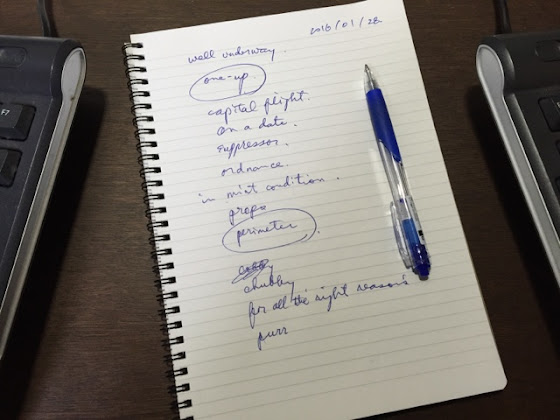 2016/01/28
well underway.
one-up.
capital flight.
on a date.
suppressor.
ordnance.
in mint condition.
grope
perimeter.
chubby
for all the right reason's
purr
F7